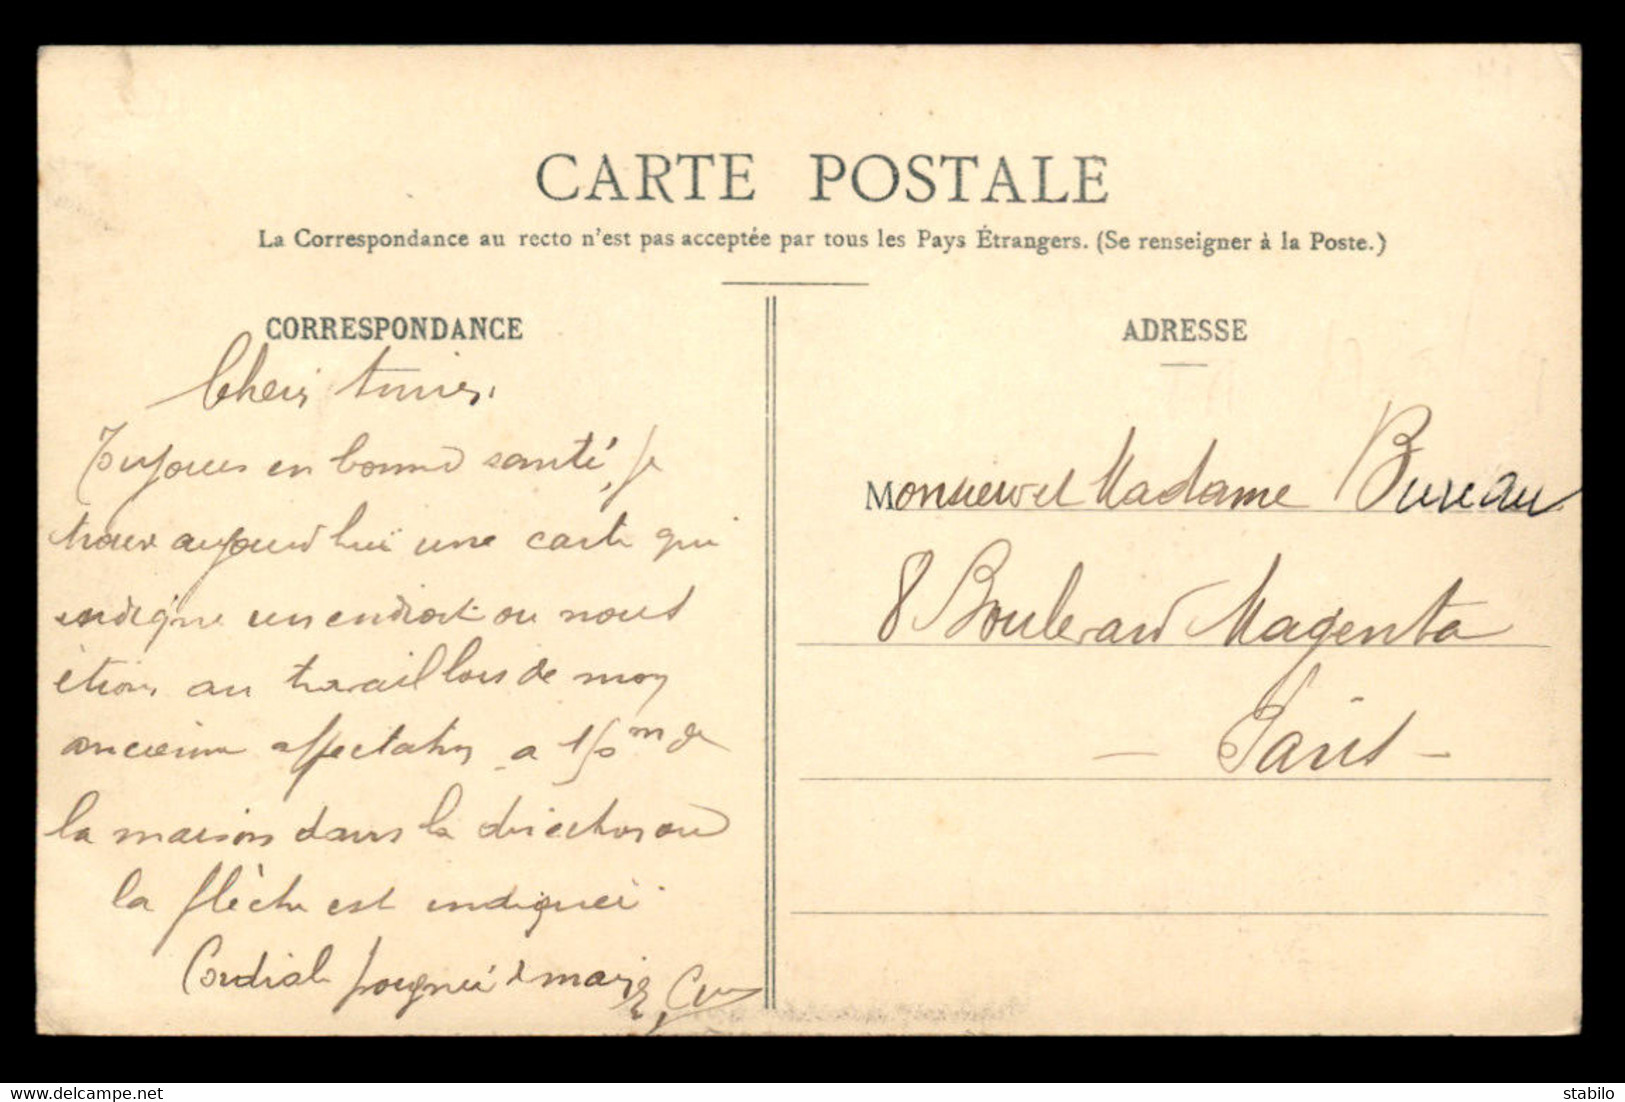 CARTE POSTALE
La Correspondance au recto n'est pas acceptée par tous les Pays Étrangers. (Se renseigner à la Poste.)
CORRESPONDANCE
Chers Amis,
Toujours en bonne santé, je
trouve aujourd'hui une carte qui
indique un endroit ou nous
étions au travail lors de mon
ancienne affectation a 150m de
la maison dans la direction ou
la flèche est indiquée.
Cordiale poignée de main
ADRESSE
Monsieur et Madame Bureau
8 Boulevard Magenta
— Paris —
delcampe.net
stabilo